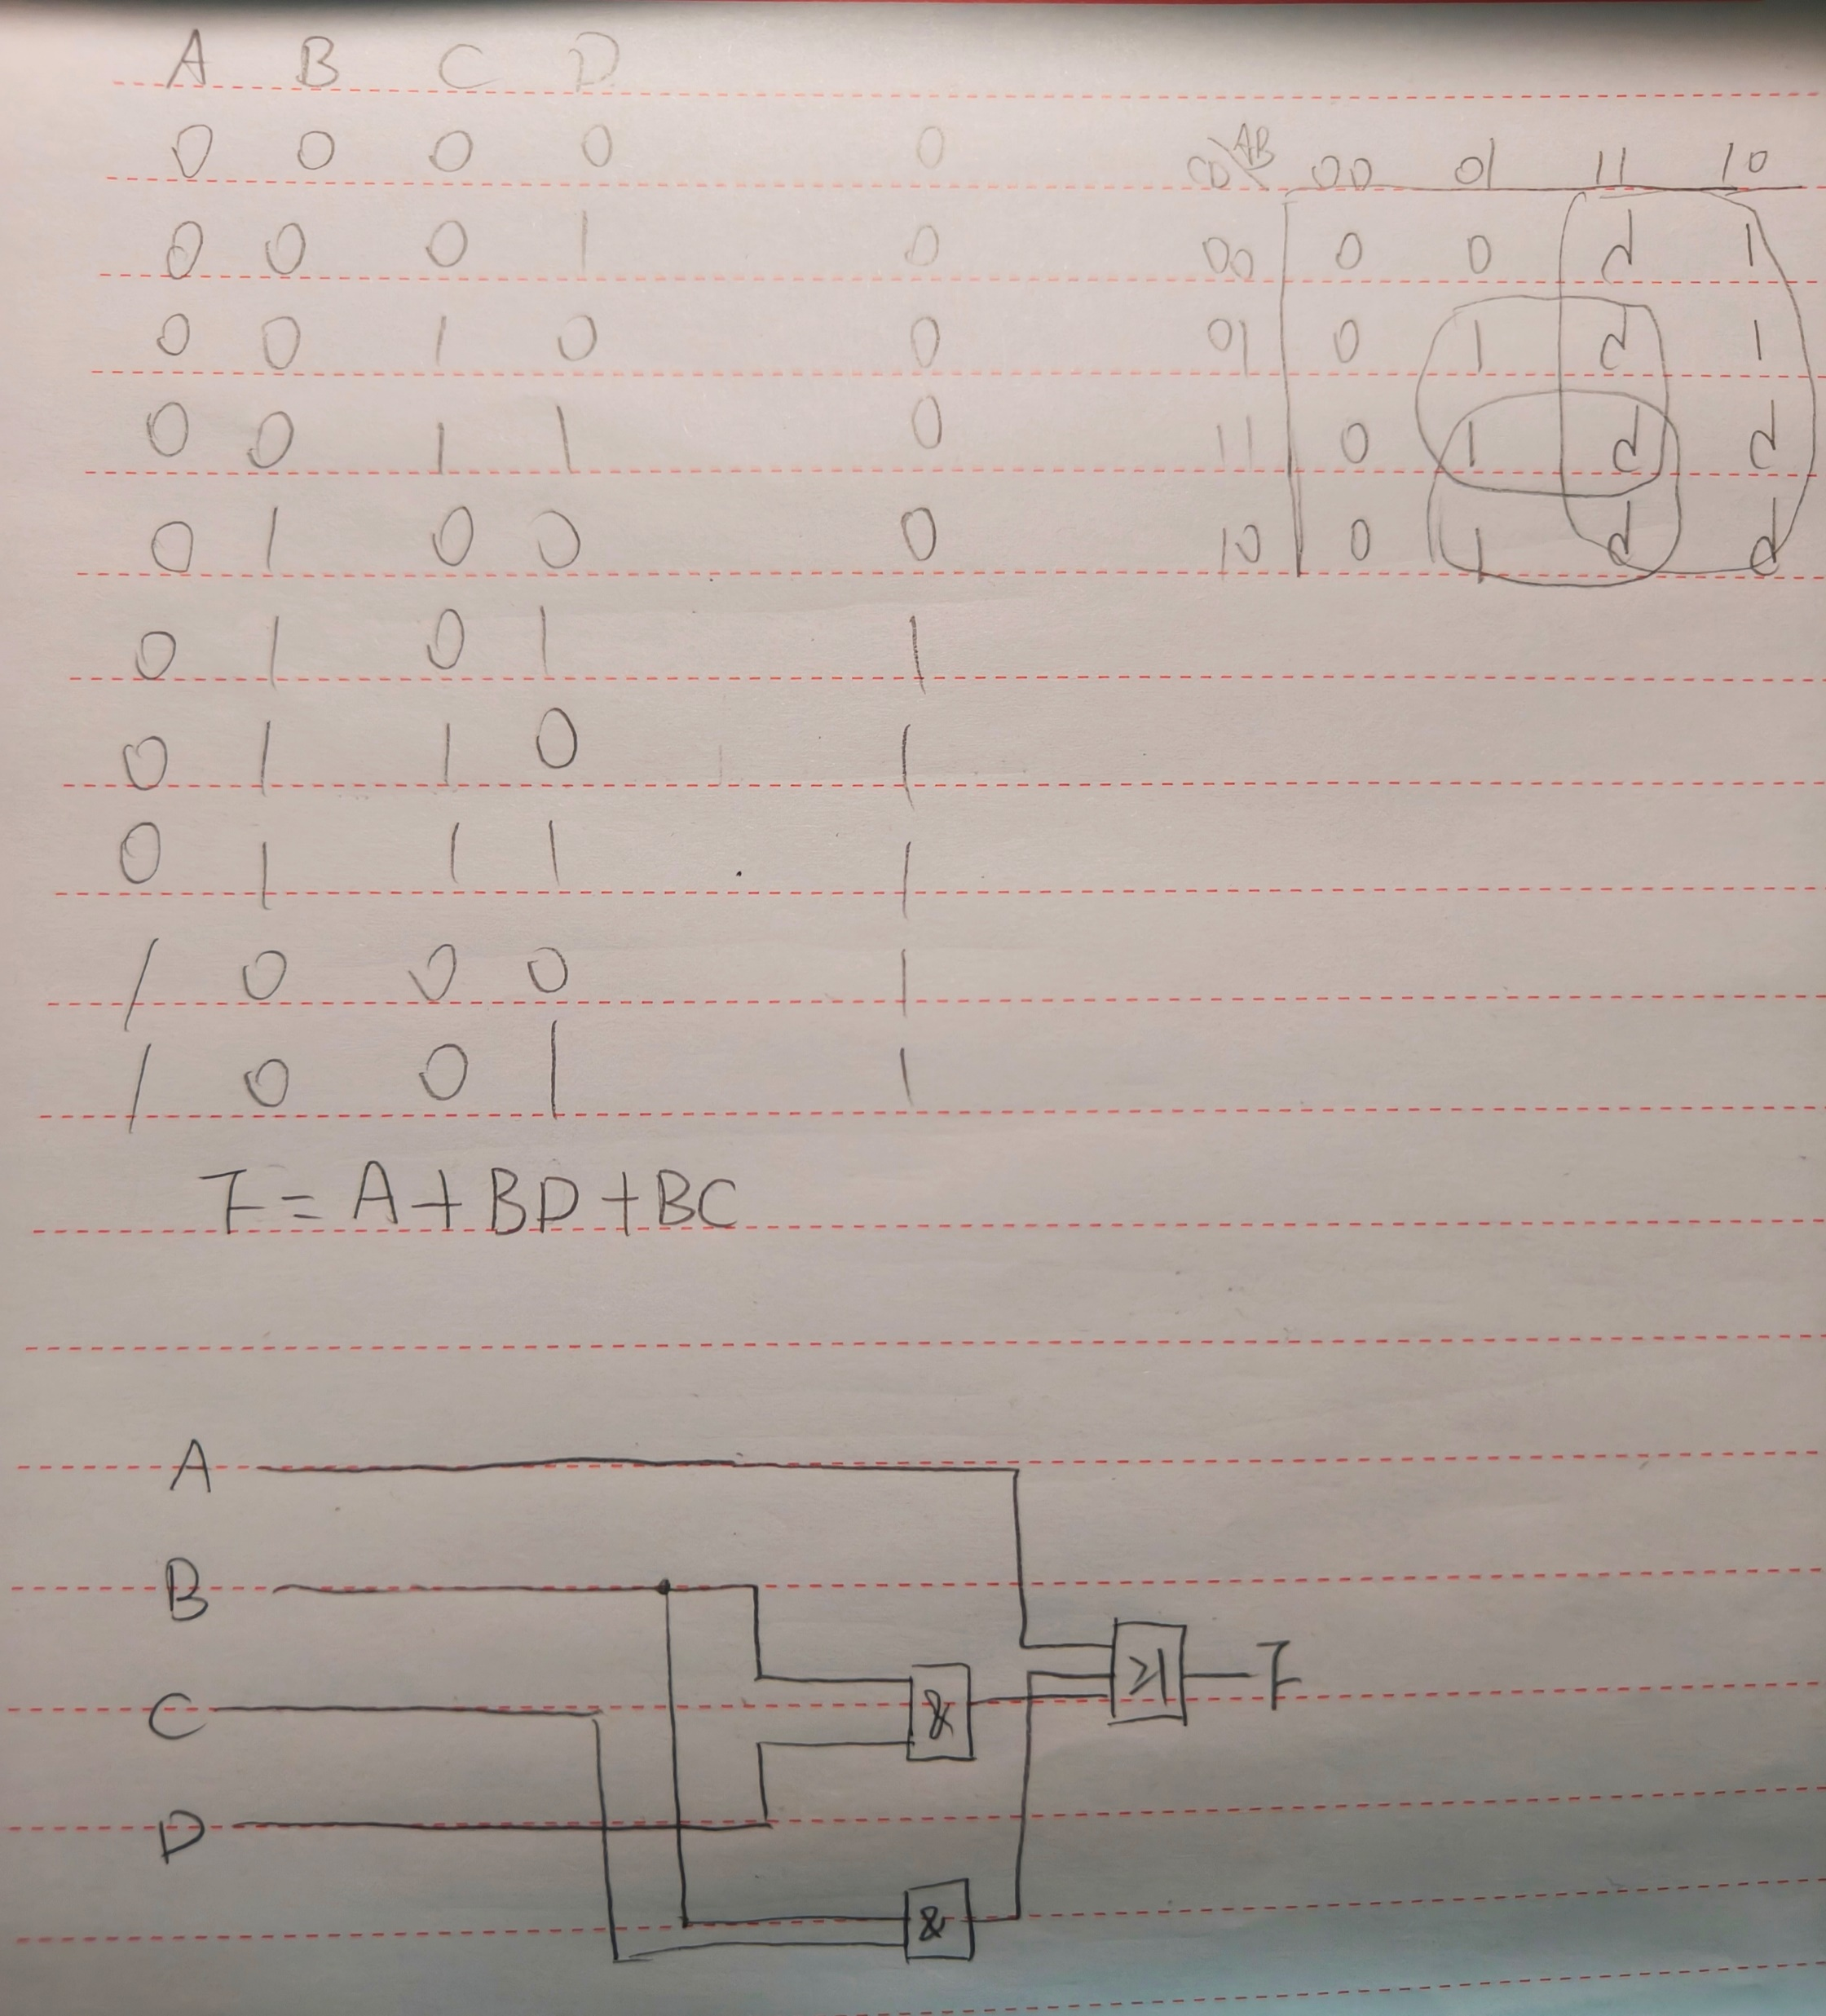 A B C D
0 0 0 0 0
0 0 0 1 0
0 0 1 0 0
0 0 1 1 0
0 1 0 0 0
0 1 0 1 1
0 1 1 0 1
0 1 1 1 1
1 0 0 0 1
1 0 0 1 1
CD\AB 00 01 11 10
00 0 0 d 1
01 0 1 d 1
11 0 1 d d
10 0 1 d d
F = A + BD + BC
A
B
C
D
&
&
≥1
F